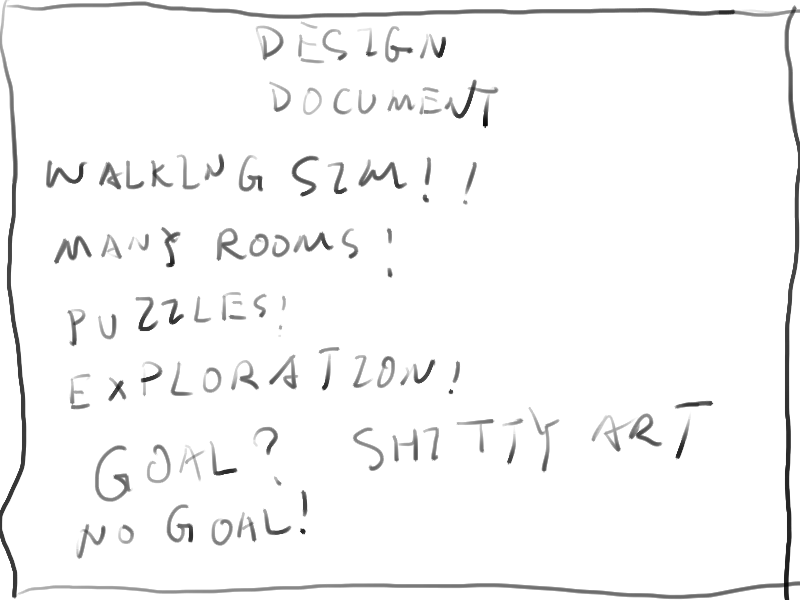 DESIGN
DOCUMENT
WALKING SIM!!
MANY ROOMS!
PUZZLES!
EXPLORATION!
GOAL? SHITTY ART
NO GOAL!